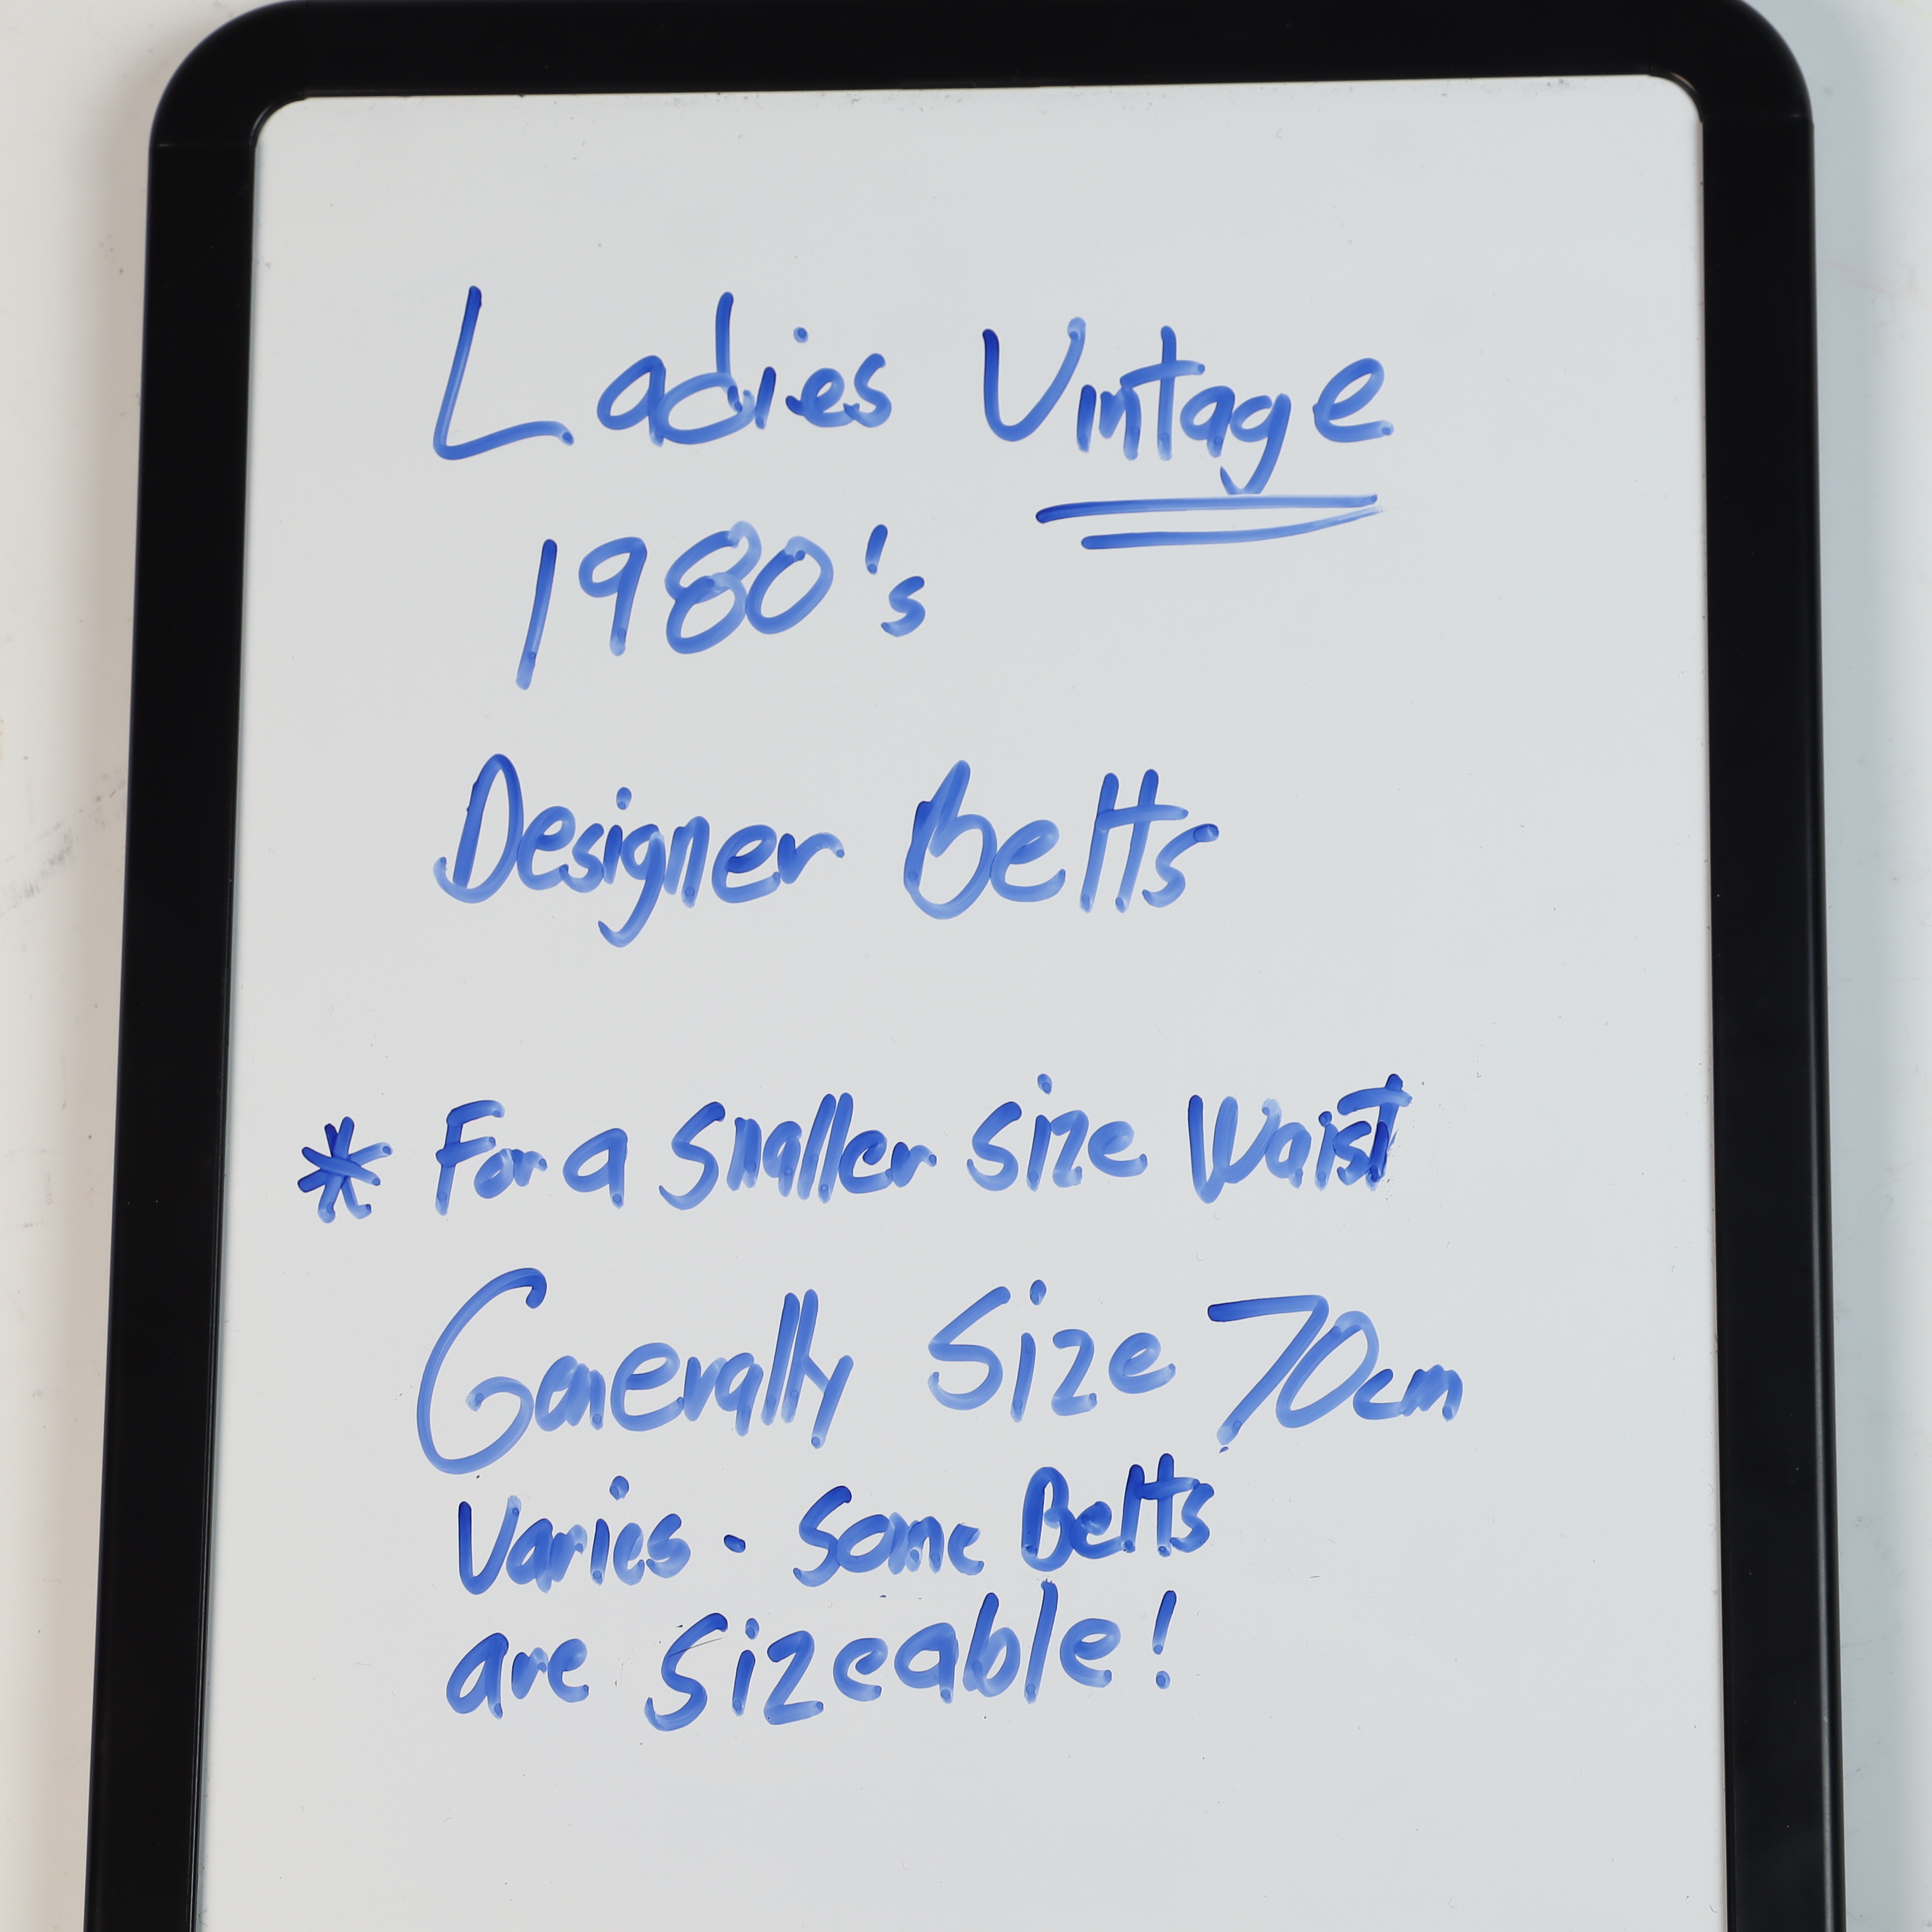 Ladies Vintage
1980's
Designer Belts
* For a smaller size Waist
Generally Size 70cm
Varies - Some Belts
are Sizeable!